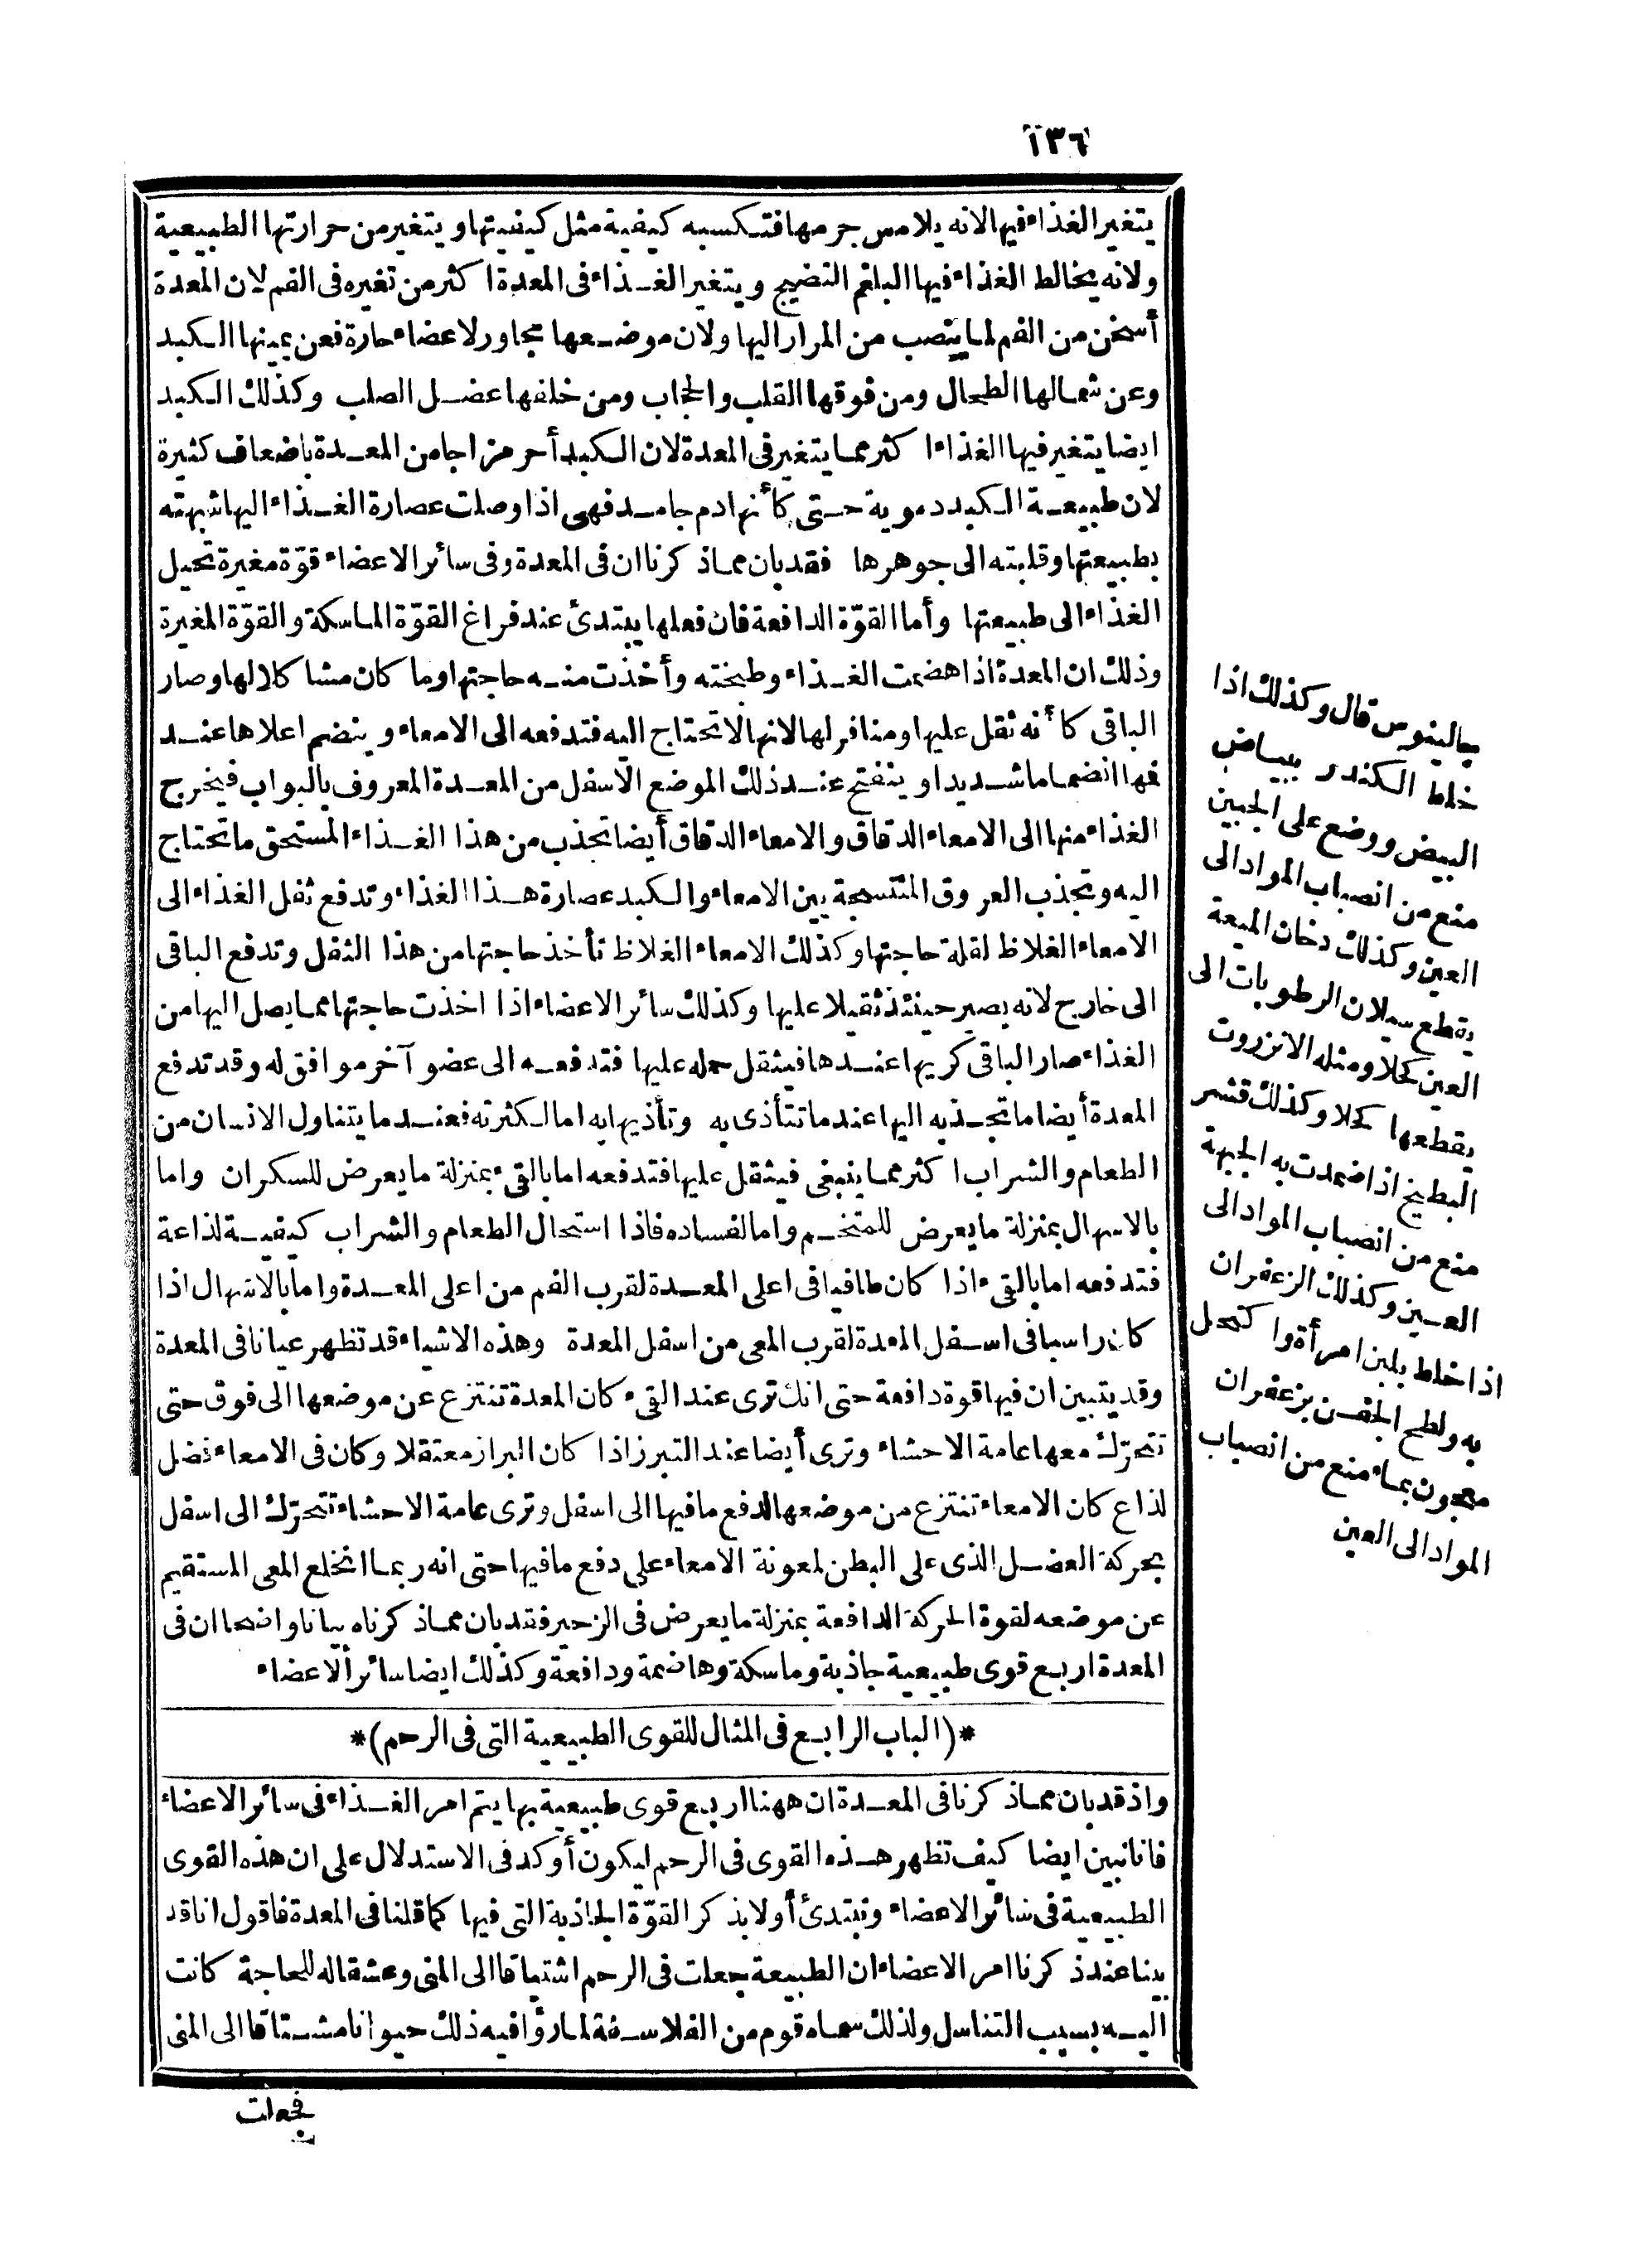 ١٣٦
يتغير الغذاء فيها لانه يلامس جرمها فتكسبه كيفية مثل كيفيتها ويتغير من حرارتها الطبيعية
ولانه يخالط الغذاء فيها البلغم النضيج ويتغير الغذاء فى المعدة اكثر من تغيره فى الفم لان المعدة
أسخن من الفم لما ينصب من المرار اليها ولان موضعها مجاور لاعضاء حارة فعن يمينها الكبد
وعن شمالها الطحال ومن فوقها القلب والحجاب ومن خلفها عضل الصلب وكذلك الكبد
ايضا يتغير فيها الغذاء اكثر مما يتغير فى المعدة لان الكبد أحر مزاجا من المعدة باضعاف كثيرة
لان طبيعة الكبد دموية حتى كأنها دم جامد فهى اذا وصلت عصارة الغذاء اليها شبهته
بطبيعتها وقلبته الى جوهرها فقد بان مما ذكرنا ان فى المعدة وفى سائر الاعضاء قوّة مغيرة تحيل
الغذاء الى طبيعتها وأما القوّة الدافعة فان فعلها يبتدئ عند فراغ القوّة الماسكة والقوّة المغيرة
وذلك ان المعدة اذا هضمت الغذاء وطبخته وأخذت منه حاجتها وما كان مشاكلا لها وصار
الباقى كأنه ثقل عليها ومنافر لها لانها لا تحتاج اليه فتدفعه الى الامعاء وينضم اعلاها عند
فمها انضماما شديدا وينفتح عند ذلك الموضع الاسفل من المعدة المعروف بالبواب فيخرج
الغذاء منها الى الامعاء الدقاق والامعاء الدقاق أيضا تجذب من هذا الغذاء المستحق ما تحتاج
اليه وتجذب العروق المنتسجة بين الامعاء والكبد عصارة هذا الغذاء وتدفع ثفل الغذاء الى
الامعاء الغلاظ لقلة حاجتها وكذلك الامعاء الغلاظ تأخذ حاجتها من هذا الثفل وتدفع الباقى
الى خارج لانه يصير حينئذ ثقيلا عليها وكذلك سائر الاعضاء اذا اخذت حاجتها مما يصل اليها من
الغذاء صار الباقى كريها عندها فيثقل حمله عليها فتدفعه الى عضو آخر موافق له وقد تدفع
المعدة أيضا ما تجذبه اليها عند ما تتأذى به وتأذيها به اما لكثرته فعند ما يتناول الانسان من
الطعام والشراب اكثر مما ينبغى فيثقل عليها فتدفعه اما بالقىء بمنزلة ما يعرض للسكران واما
بالاسهال بمنزلة ما يعرض للمتخم واما لفساده فاذا استحال الطعام والشراب كيفية لذاعة
فتدفعه اما بالقىء اذا كان طافيا فى اعلى المعدة لقرب الفم من اعلى المعدة واما بالاسهال اذا
كان راسبا فى اسفل المعدة لقرب المعى من اسفل المعدة وهذه الاشياء قد تظهر عيانا فى المعدة
وقد يتبين ان فيها قوة دافعة حتى انك ترى عند القىء كان المعدة تنتزع عن موضعها الى فوق حتى
تتحرّك معها عامة الاحشاء وترى أيضا عند التبرز اذا كان البراز معتقلا وكان فى الامعاء فضل
لذاع كان الامعاء تنتزع من موضعها لدفع ما فيها الى اسفل وترى عامة الاحشاء تتحرّك الى اسفل
بحركة العضل الذى على البطن لمعونة الامعاء على دفع ما فيها حتى انه ربما انخلع المعى المستقيم
عن موضعه لقوة الحركة الدافعة بمنزلة ما يعرض فى الزحير فقد بان مما ذكرناه بيانا واضحا ان فى
المعدة اربع قوى طبيعية جاذبة وماسكة وهاضمة ودافعة وكذلك ايضا سائر الاعضاء
*(الباب الرابع فى المثال للقوى الطبيعية التى فى الرحم)*
واذ قد بان مما ذكرنا فى المعدة ان ههنا اربع قوى طبيعية بها يتم امر الغذاء فى سائر الاعضاء
فانا نبين ايضا كيف تظهر هذه القوى فى الرحم ليكون أوكد فى الاستدلال على ان هذه القوى
الطبيعية فى سائر الاعضاء ونبتدئ أولا بذكر القوّة الجاذبة التى فيها كما قلنا فى المعدة فاقول اناقد
بينا عند ذكرنا امر الاعضاء ان الطبيعة جعلت فى الرحم اشتياقا الى المنى وعشقا له للحاجة كانت
اليه بسبب التناسل ولذلك سماه قوم من الفلاسفة لما رؤا فيه ذلك حيوانا مشتاقا الى المنى
فجعلت
جالينوس قال وكذلك اذا
خلط الكندر ببياض
البيض ووضع على الجبين
منع من انصباب المواد الى
العين وكذلك دخان الميعة
يقطع سيلان الرطوبات الى
العين كحلا ومثله الانزروت
يقطعها كحلا وكذلك قشر
البطيخ اذا ضمدت به الجبهة
منع من انصباب المواد الى
العين وكذلك الزعفران
اذا خلط بلبن امرأة واكتحل
به ولطخ الجفن بزعفران
معجون بماء منع من انصباب
المواد الى العين